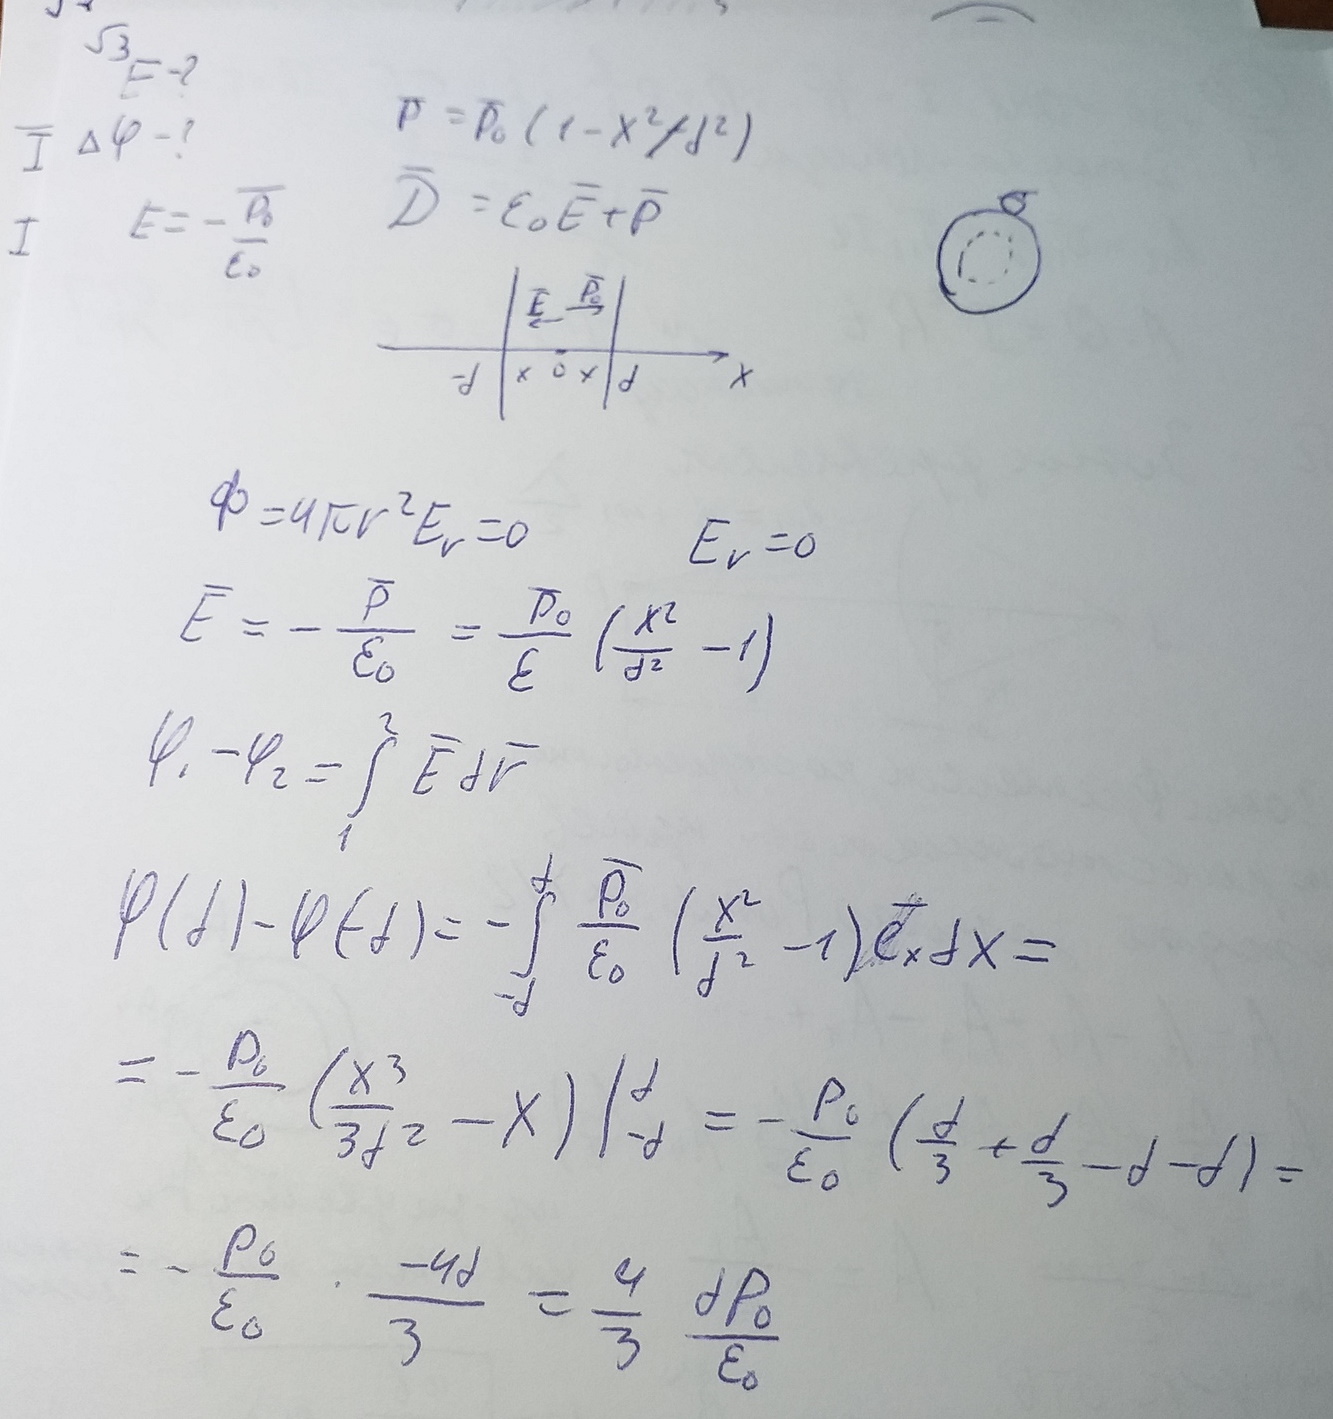 √3
E-?
Δφ-?
P̄ = P̄₀ (1 - x²/d²)
Ī
D̄ = ε₀Ē + P̄
I E = - P̄₀/ε₀
σ
Ē P̄₀
-d x 0 x d x
Φ = 4πr²Eᵣ = 0 Eᵣ = 0
Ē = - P̄/ε₀ = P̄₀/ε (x²/d² - 1)
φ₁ - φ₂ = ∫₁² Ē dr̄
φ(d) - φ(-d) = - ∫_{-d}^{d} P̄₀/ε₀ (x²/d² - 1) ē_x dx =
= - P₀/ε₀ (x³/3d² - x) |_{-d}^{d} = - P₀/ε₀ (d/3 + d/3 - d - d) =
= - P₀/ε₀ · -4d/3 = 4/3 dP₀/ε₀